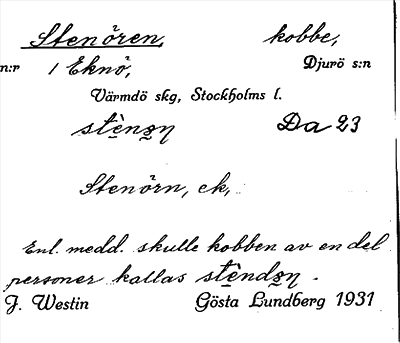 Stenören, kobbe,
n:r 1 Eknö, Djurö s:n
Värmdö skg, Stockholms l.
stè̱nǝ̱n Da 23
Stenörn, ek,
Enl. medd. skulle kobben av en del
personer kallas stè̱ndǝ̱n.
J. Westin Gösta Lundberg 1931